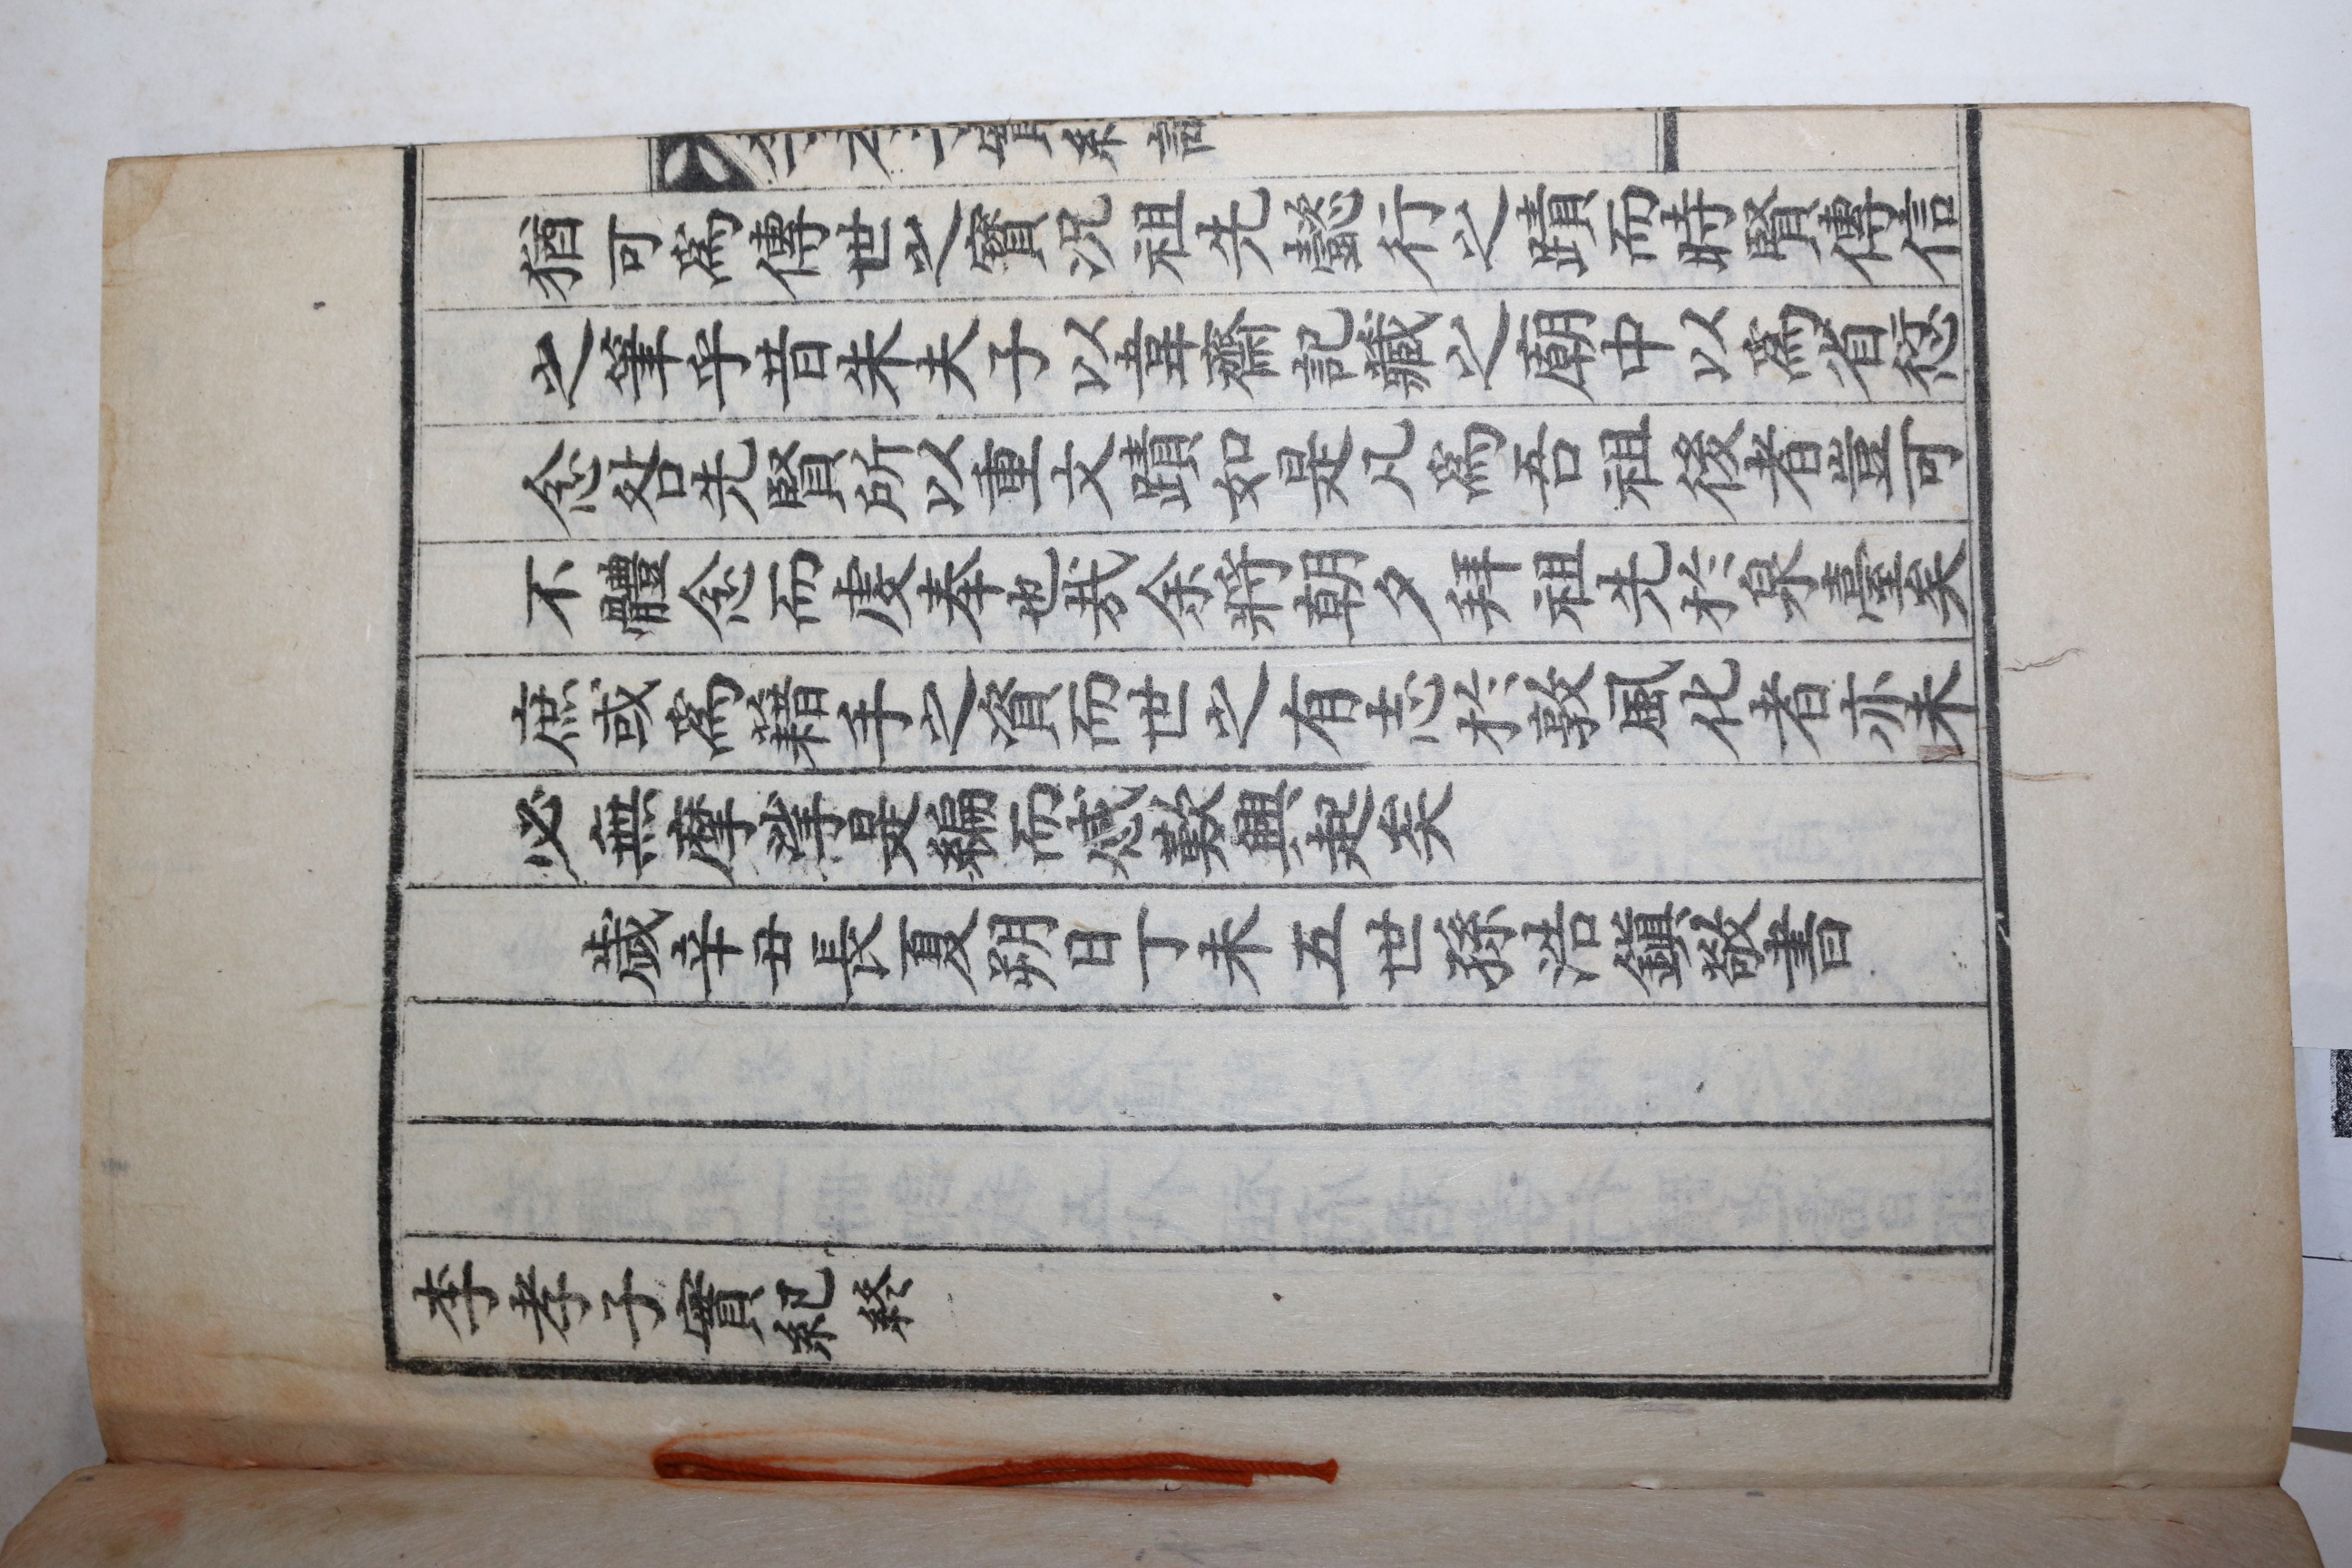 猶可爲傳世之寶况祖先懿行之蹟而時賢傳信
之筆乎昔朱夫子以韋齋記藏之廟中以爲省愆
念咎先賢所以重文蹟如是凡爲吾祖後者豈可
不體念而虔奉也㦲余將朝夕拜祖先於泉臺矣
庶或爲藉手之資而世之有志於敦風化者亦未
必無摩挲是編而感歎興起矣
歲辛丑長夏朔日丁未五世孫浩鎭敬書
李孝子實紀終